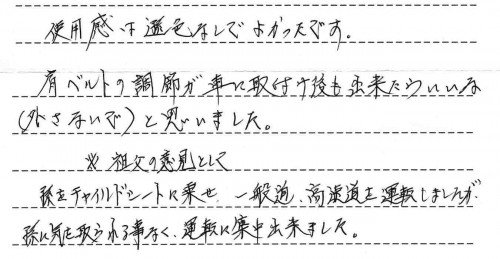 使用感は遜色なしでよかったです。
肩ベルトの調節が車に取付け後も出来たらいいな
(外さないで)と思いました。
※祖父の意見として
孫をチャイルドシートに乗せ、一般道、高速道を運転しましたが、
孫に気を取られる事なく、運転に集中出来ました。